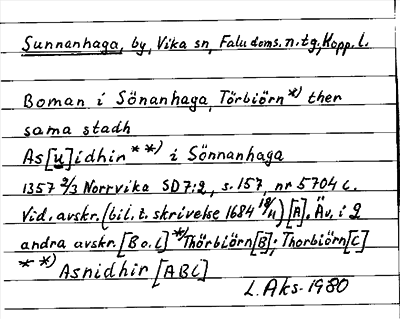 Sunnanhaga, by, Vika sn, Falu doms. n. tg, Kopp. l.
Boman i Sönanhaga, Törbiörn*) ther
sama stadh
As[u]idhir**) i Sönnanhaga
1357 2/3 Norrvika SD7:2, s. 157, nr 5704 c.
Vid. avskr. (bil. t. skrivelse 1684 18/11) [A]. Äv. i 2
andra avskr. [B o. C] *) Thörbiörn[B]; Thorbiörn[C]
**) Asnidhir [ABC]
L. Aks. 1980